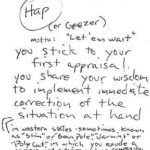 Hap
(or Geezer)
motto: "Let 'em wait"
you stick to your
first appraisal.
you share your wisdom
to implement immediate
correction of the
situation at hand
in western states - sometimes known
as "Slim" or "Bean Pole", "Varmint" or
"PolyCat", in which you exude a